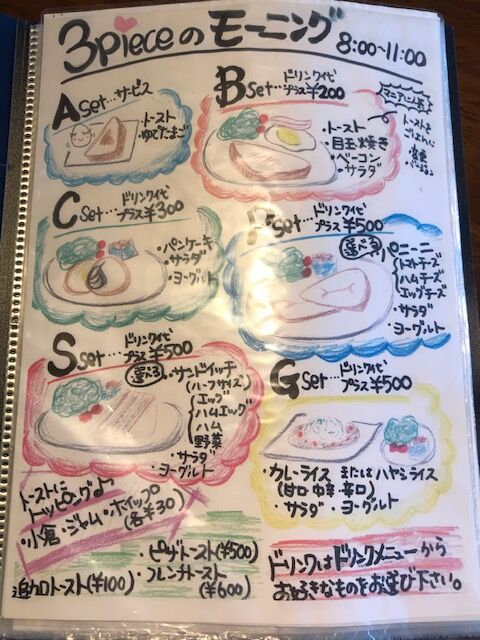 3pieceのモーニング 8:00~11:00
A set…サービス
・トースト
・ゆでたまご
B set…ドリンク代プラス¥200
・トースト
・目玉焼き
・ベーコン
・サラダ
マニアに人気
トーストを
C set…ドリンク代プラス¥300
・パンケーキ
・サラダ
・ヨーグルト
P set…ドリンク代プラス¥500
選べる パニーニ
トマトチーズ
ハムチーズ
エッグチーズ
・サラダ
・ヨーグルト
S set…ドリンク代プラス¥500
選べる サンドイッチ
(ハーフサイズ)
エッグ
ハムエッグ
ハム
野菜
・サラダ
・ヨーグルト
G set…ドリンク代プラス¥500
・カレーライス またはハヤシライス
(甘口・中辛・辛口)
・サラダ ・ヨーグルト
トーストに
トッピング♪
・小倉・ジャム・ホイップ
(各¥30)
・ピザトースト(¥500)
追加トースト(¥100)
・フレンチトースト
(¥600)
ドリンクはドリンクメニューから
お好きなものをお選び下さい。